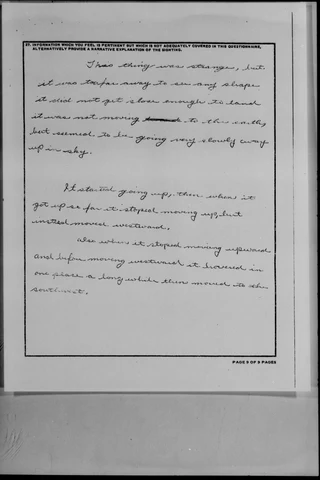 27. INFORMATION WHICH YOU FEEL IS PERTINENT BUT WHICH IS NOT ADEQUATELY COVERED IN THIS QUESTIONNAIRE, ALTERNATIVELY PROVIDE A NARRATIVE EXPLANATION OF THE SIGHTING.
thing was strange, but
it was too far away to see any shape
it did not get close enough to land
it was not moving to the earth,
but seemed to be going very slowly away
up in sky.
It started going up, then when it
got up so far it stoped moving up, but
insted moved westward.
also when it stoped moving upward
and before moving westward it hovered in
one place a long while then moved to the
southwest.
PAGE 9 OF 9 PAGES